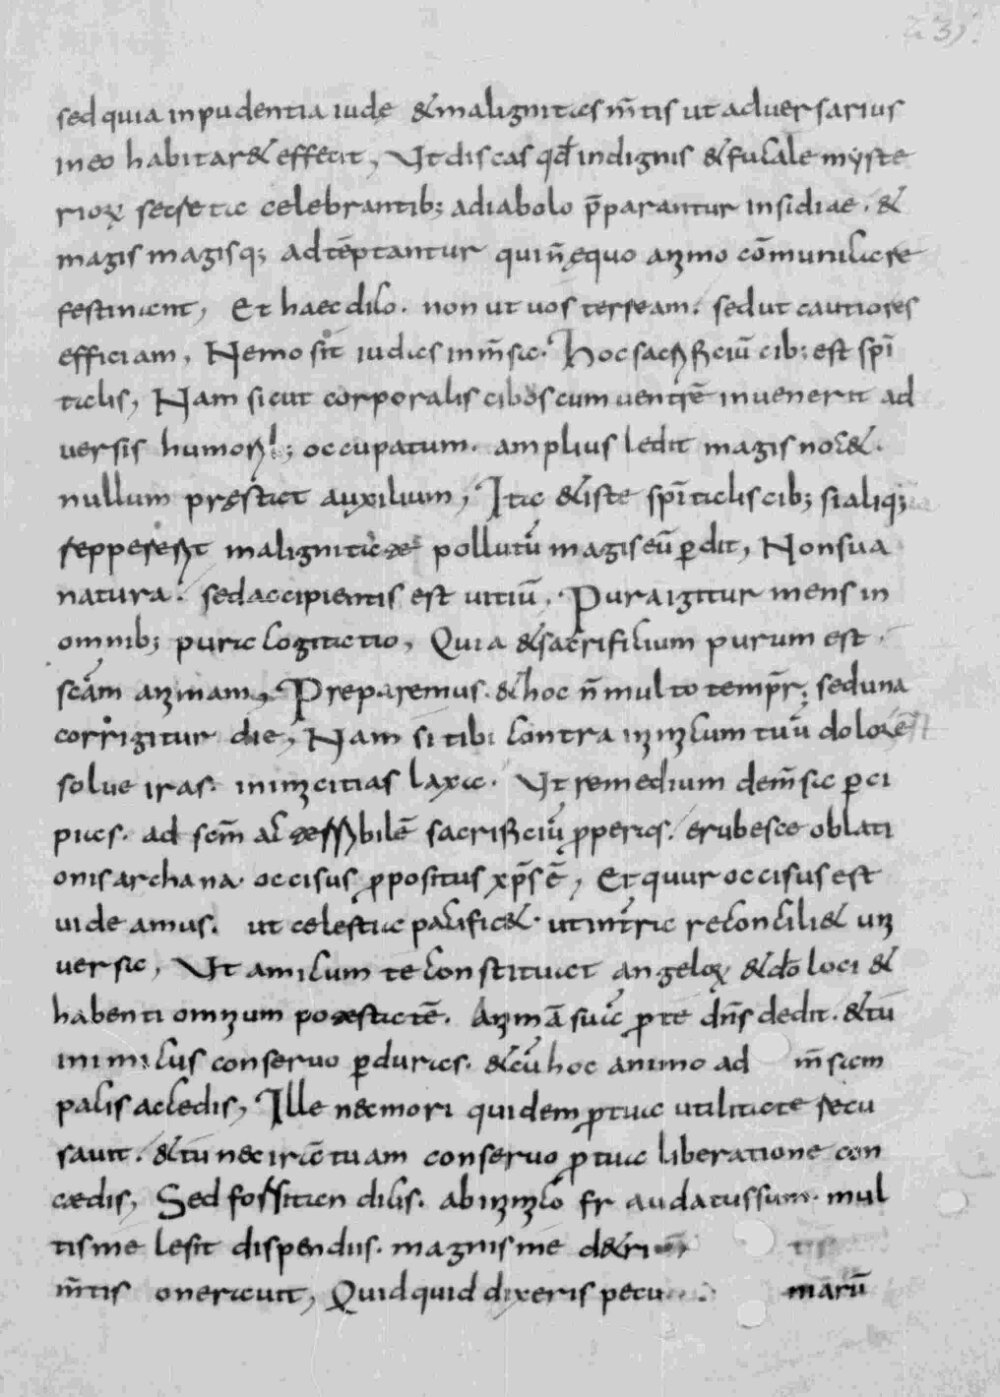 sed quia inpudentia iudę & malignitas m̄tis ut aduersarius
in eo habitar& effecit, Ut discas qđ indignis & fucale myste
rioꝝ se ipse tic celebrantib; a diabolo p̄parantur insidiae. &
magis magisq; ad tēptantur qui n̄ ęquo animo cōmunicare
festinant, Et haec dico. non ut uos terream. sed ut cautiores
efficiam, Nemo sit iudas in m̄sa. Hoc sacrificiū cib; est sp̄i
talis, Nam sicut corporalis cibos cum uentrē inuenerit ad
uersis humorib; occupatum. amplius ledit magis noc&.
nullum pręstat auxilium, Ita & iste sp̄italis cib; si aliq;
reppererit malignita pollutū magis eū ꝑdit, Non sua
natura. sed accipientis est uitiū, Pura igitur mens in
omnib; pura cogitatio, Quia & sacrificium purum est
scām animam, Preparemus. & hoc n̄ multo temp̄r; sed una
corrigitur die, Nam si tibi contra inimicum tuū dolorē
solue iras. inimicitias laxa. Ut remedium de m̄sa ꝑci
pias. ad scm̄ ac sacrificiū ꝓperas. erubesce oblati
onis archana. occisus ꝓpositus xp̄s ē, Et quur occisus est
uideamus. ut celestia pacific&. ut int̄ra reconcili& uni
uersa, Ut amicum te constituat angeloꝝ & dō loci &
habenti omnium potestatē. Animā suā ꝓ te dn̄s dedit. & tū
inimicus conseruo ꝑduras. & cū hoc animo ad m̄sam
pacis accedis, Ille nec mori quidem ꝓ tua utilitate recu
sauit. & tū nec irā tuam conseruo ꝓ tua liberatione con
cædis, Sed forsitan dicis. ab inimicō fraudatus sum. mul
tis me lesit dispendiis. magnis me d&ri
m̄tis onerauit, Quidquid dixeris pecu marū